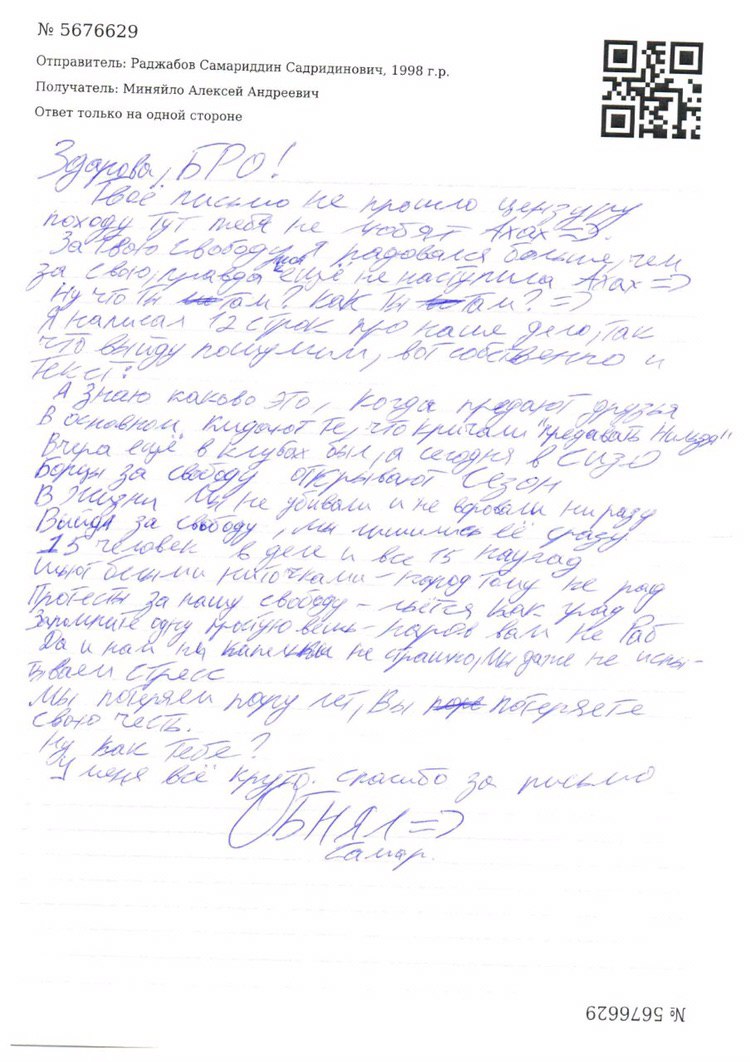 № 5676629
Отправитель: Раджабов Самариддин Садридинович, 1998 г.р.
Получатель: Миняйло Алексей Андреевич
Ответ только на одной стороне
Здарова, БРО!
Твоё письмо не прошло цензуру
походу тут тебя не любят Ахах =).
За твою свободу я радовался больше, чем
за свою, правда ещё не наступила Ахах =)
Ну что ты там? Как ты там? =)
Я написал 12 строк про наше дело, так
что выйду пошумим, вот собственно и
текст:
Я знаю каково это, когда предают друзья
В основном, кидают те, что кричали "предавать Нильзя"
Вчера ещё в клубах был, а сегодня в Сизо
Борцы за свободу открывают Сезон
В жизни мы не убивали и не воровали ни разу
Выйдя за свободу, мы лишились её сразу
15 человек в деле и все 15 наугад
Шьют белыми ниточками - народ тому не рад
Протесты за нашу свободу - льётся как град
Запомните одну простую вещь - народ вам не Раб
Да и нам ни капельки не страшно, мы даже не испы-
тываем стресс
Мы потеряем пару лет, Вы потеряете
свою честь.
Ну как тебе?
У меня всё круто. Спасибо за письмо
ОБНЯЛ =)
Самар.
№ 5676629